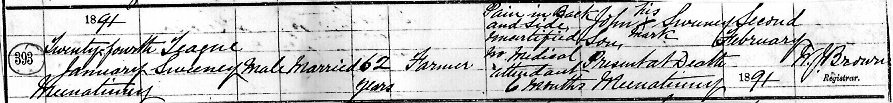 1891
393
Twenty fourth
January
Meenatinny
Teague
Sweeney
Male
Married
62
Years
Farmer
Pain in Back
and Side
Uncertified
No Medical
attendant
6 months
John his X mark Sweeney
Son
Present at Death
Meenatinny
Second
February
1891
W J Brown
Registrar.